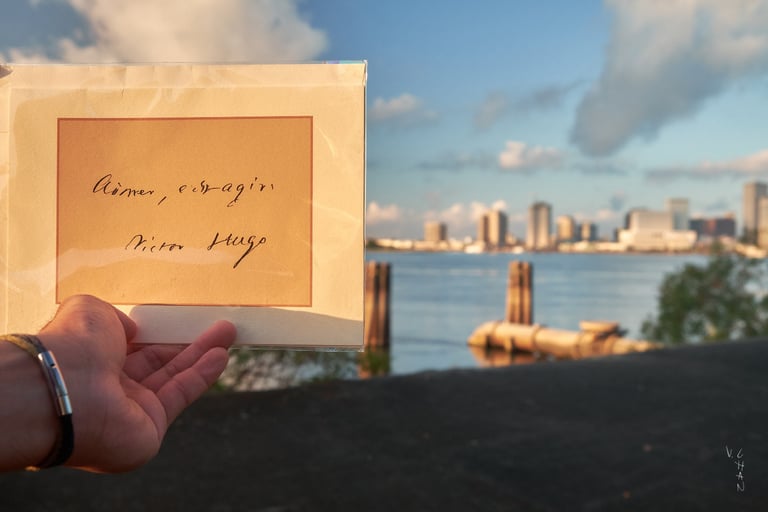 Aimer, c'est agir.
Victor Hugo
V. CHAN